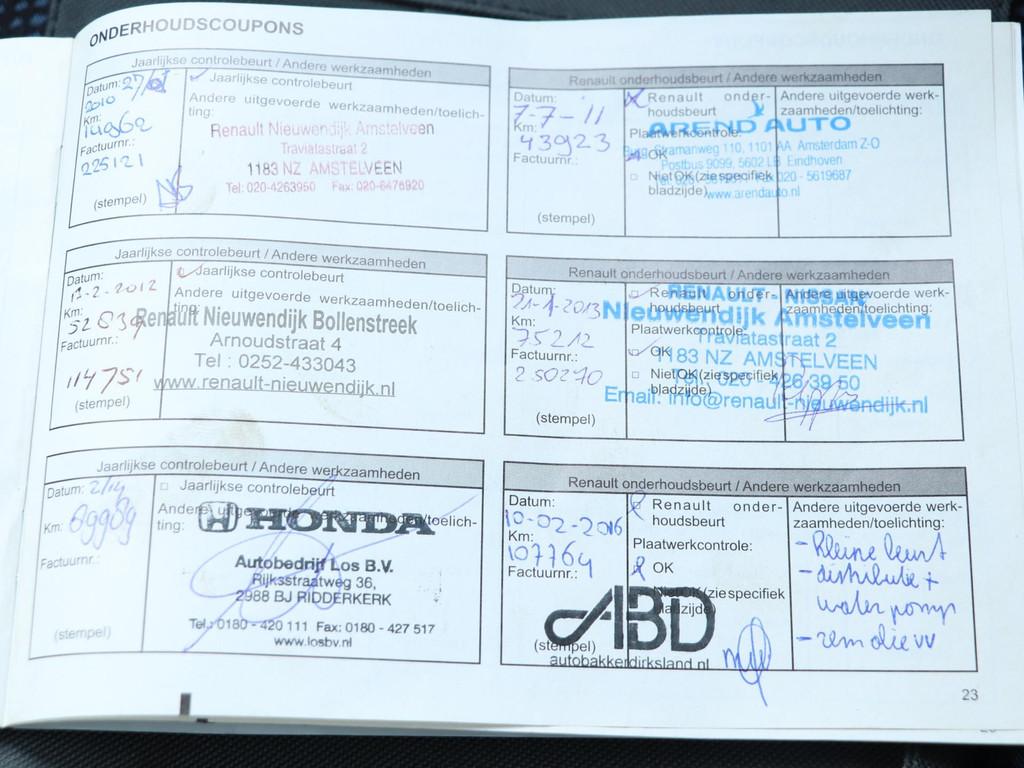 ONDERHOUDSCOUPONS
Jaarlijkse controlebeurt / Andere werkzaamheden
Datum: 27/01
2010
Km:
14962
Factuurnr.:
225121
(stempel)
Jaarlijkse controlebeurt
Andere uitgevoerde werkzaamheden/toelich-
ting:
Renault Nieuwendijk Amstelveen
Traviatastraat 2
1183 NZ AMSTELVEEN
Tel: 020-4263950 Fax: 020-6476920
Renault onderhoudsbeurt / Andere werkzaamheden
Datum:
7-7-'11
Km:
43923
Factuurnr.:
(stempel)
Renault onder-
houdsbeurt
Plaatwerkcontrole:
OK
Niet OK (zie specifiek
bladzijde)
Andere uitgevoerde werk-
zaamheden/toelichting:
AREND AUTO
Burg. Stramanweg 110, 1101 AA Amsterdam Z-O
Postbus 9099, 5602 LB Eindhoven
020 - 5619687
www.arendauto.nl
Jaarlijkse controlebeurt / Andere werkzaamheden
Datum:
17-2-2012
Km:
52839
Factuurnr.:
114751
(stempel)
Jaarlijkse controlebeurt
Andere uitgevoerde werkzaamheden/toelich-
ting:
Renault Nieuwendijk Bollenstreek
Arnoudstraat 4
Tel : 0252-433043
www.renault-nieuwendijk.nl
Renault onderhoudsbeurt / Andere werkzaamheden
Datum:
21-1-2013
Km:
75212
Factuurnr.:
250270
(stempel)
Renault onder-
houdsbeurt
Plaatwerkcontrole:
OK
Niet OK (zie specifiek
bladzijde)
Andere uitgevoerde werk-
zaamheden/toelichting:
RENAULT - NISSAN
Nieuwendijk Amstelveen
Traviatastraat 2
1183 NZ AMSTELVEEN
Tel.: 020 - 426 39 50
Email: info@renault-nieuwendijk.nl
Jaarlijkse controlebeurt / Andere werkzaamheden
Datum: 2/14
Km: 89989
Factuurnr.:
(stempel)
Jaarlijkse controlebeurt
Andere uitgevoerde werkzaamheden/toelich-
ting:
HONDA
Autobedrijf Los B.V.
Rijksstraatweg 36,
2988 BJ RIDDERKERK
Tel.: 0180 - 420 111 Fax: 0180 - 427 517
www.losbv.nl
Renault onderhoudsbeurt / Andere werkzaamheden
Datum:
10-02-2016
Km:
107764
Factuurnr.:
(stempel)
Renault onder-
houdsbeurt
Plaatwerkcontrole:
OK
Niet OK (zie specifiek
bladzijde)
ABD
autobakkerdirksland.nl
Andere uitgevoerde werk-
zaamheden/toelichting:
- Kleine beurt
- distributie +
water pomp
- remolie vv
23